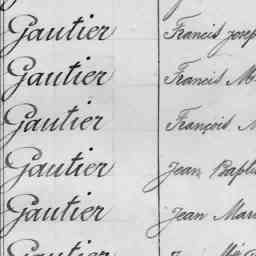 Gautier Francis Josep
Gautier Francis M
Gautier François M
Gautier Jean Bapti
Gautier Jean Mari
Gautier